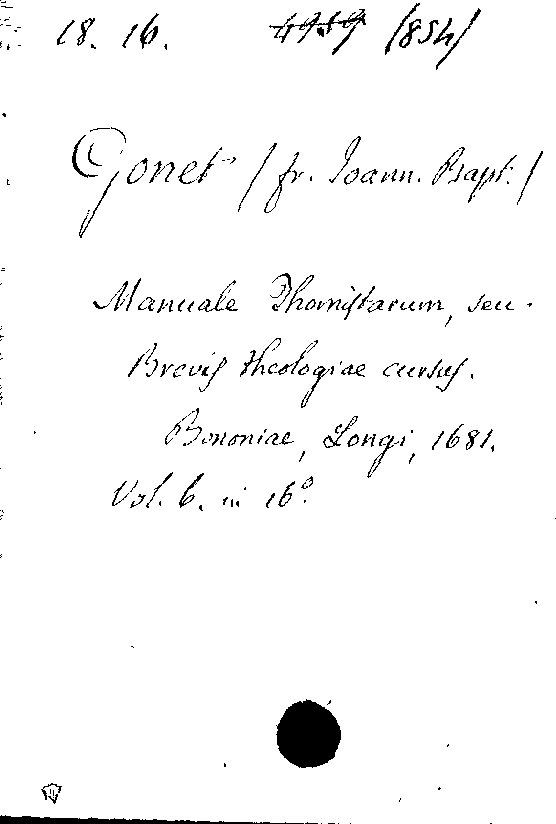 18. 16. 4959 (854)
Gonet (fr. Joann. Bapt.)
Manuale Thomistarum, seu
Brevis theologiae cursus.
Bononiae, Longi, 1681.
Vol. 6. in 16°